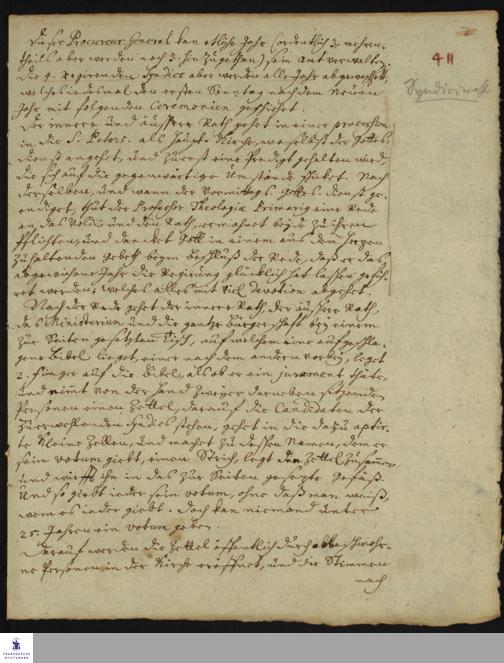 2
411
Syndicus
Dieser Procureur General kan etliche Jahr (ordentlich 3. mehren-
theils aber werden noch 3. hin zugethan) sein Amt verwalten.
Die 4. Regirenden Syndics aber werden alle Jahr abgewechselt,
welches iedesmal den ersten Sonntag nach dem Neuen
Jahr mit folgenden Ceremonien geschiehet.
Der innere und äussere Rath gehet in einer procession
in die S. Peters- als Haupt-Kirche, woselbst der Gottes-
dienst angehet, und zuerst eine Predigt gehalten wird
die sich auf die gegenwärtige Umstände schicket. Nach
derselben, und wann der Vormittags-Gottesdienst ge-
endiget, thut der Professor Theologiæ Primarius eine Rede
an das Volck und den Rath, ermahnet beyde zu ihren
Pflichten, und dancket Gott in einem aus dem Herzen
zuhaltenden Gebeth beym Beschluß der Rede, daß er das
abgewichene Jahr die Regirung glücklich hat lassen gefüh-
ret werden; welches alles mit viel devotion abgehet.
Nach der Rede gehet der innere Rath, der äussere Rath,
das Ministerium und die gantze Bürgerschafft bey einem
zur Seiten gesetzten Tisch, auf welchem eine aufgeschla-
gene Bibel lieget, einer nach dem andern vorbey, leget
2. Finger auf die Bibel, als ob er ein jurament thäte,
und nimt von der Hand zweyer darneben sitzenden
Personen einen Zettel, darauf die Candidaten der
zuerwehlenden Syndics stehen, gehet in die dazu aptir-
te kleine Zellen, und machet zu dessen Namen, dem er
sein votum giebt, einen Strich, legt den Zettel zusammen
und wirfft ihn in das zur Seiten gesetzte Gefäß.
Und so giebt ieder sein votum, ohne daß man weiß,
wem es ieder giebt. Doch kan niemand unter
25. Jahren ein votum geben.
Darauf werden die Zettel öffentlich durch abgeschwohr-
ne Personen in der Kirche eröffnet, und die Stimmen
nach
FRANCKESCHE
STIFTUNGEN